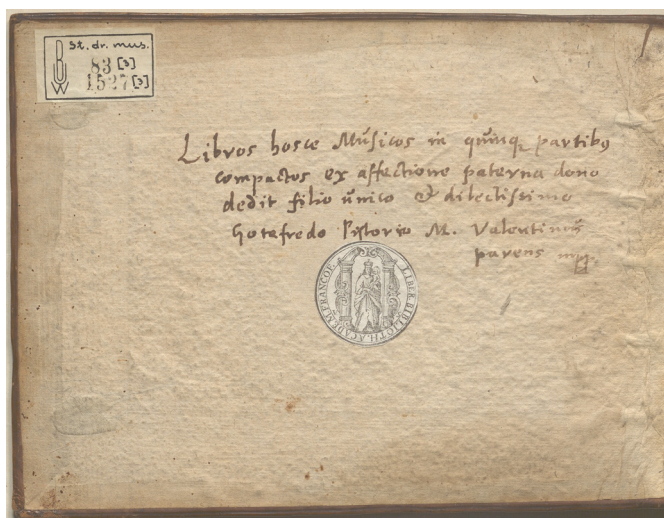 St. dr. mus.
83 [3]
1527 [3]
BUW
Libros hosce Músicos in quinq partibꝰ
compactos ex affectione paterna dono
dedit filio único & dilectissimo
Gotafredo Pistorio M. Valentinús
parens mpp.
LIBER. BIBLIOTH. ACADEMI. FRANCOF.